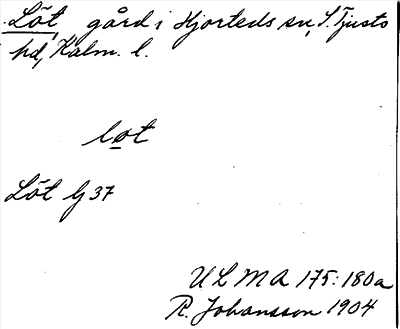 Löt, gård i Hjorteds sn, S. Tjusts
hd, Kalm. l.
løt
Löt G 37
ULMA 175:180a
R. Johansson 1904